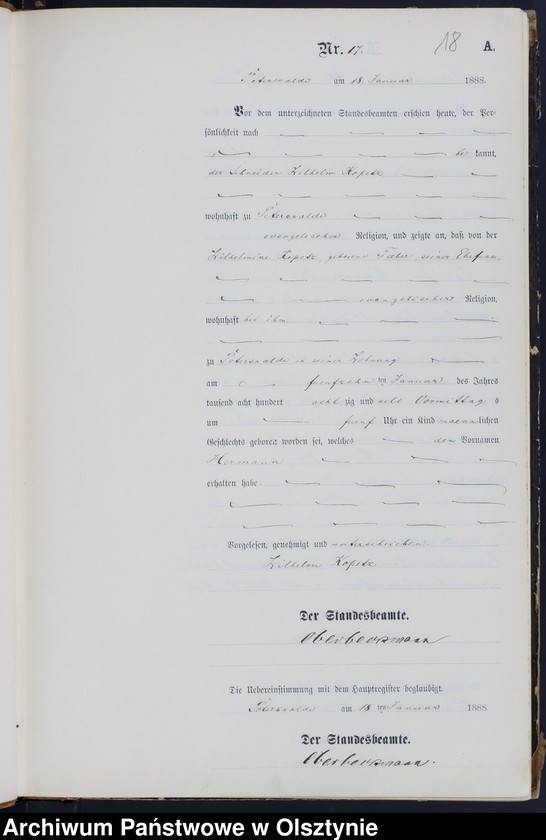 18
Nr. 17. A.
Peterswalde am 18. Januar 1888.
Vor dem unterzeichneten Standesbeamten erschien heute, der Per-
sönlichkeit nach
be kannt,
der Schneider Wilhelm Kopetz
wohnhaft zu Peterswalde
evangelischer Religion, und zeigte an, daß von der
Wilhelmine Kopetz, geborene seiner Ehefrau,
evangelischer Religion,
wohnhaft bei ihm
zu Peterswalde in seiner Wohnung
am fuenfzehn ten Januar des Jahres
tausend acht hundert acht zig und acht Vormittag s
um fuenf Uhr ein Kind maenn lichen
Geschlechts geboren worden sei, welches den Vornamen
Hermann
erhalten habe.
Vorgelesen, genehmigt und unterschrieben
Wilhelm Kopetz
Der Standesbeamte.
Die Uebereinstimmung mit dem Hauptregister beglaubigt.
Peterswalde am 18 ten Januar 1888
Der Standesbeamte.
Archiwum Państwowe w Olsztynie